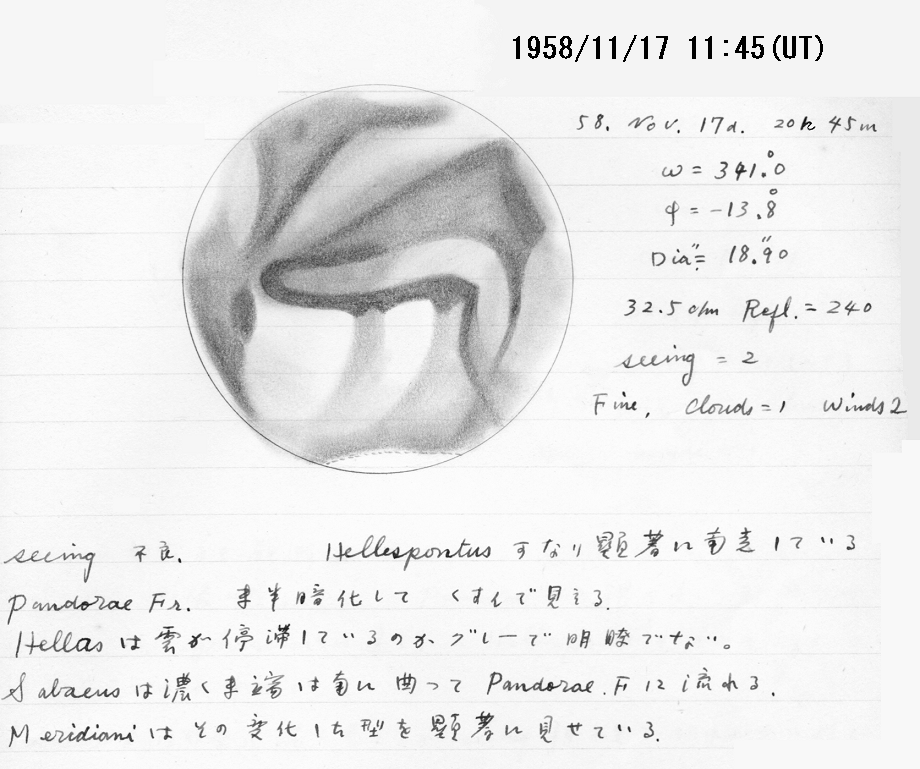 1958/11/17 11:45(UT)
58. Nov. 17d. 20h 45m
ω = 341.°0
φ = -13.°8
Dia = 18.″90
32.5 cm Refl. = 240
seeing = 2
Fine, Clouds = 1 Winds 2
seeing 不良. Hellespontus すなり顕著に南走している
Pandorae Fr. 東半暗化して くすんで見える.
Hellas は雲が停滞しているのかグレーで明瞭でない。
Sabaeus は濃く東端は南に曲って Pandorae. F に流れる.
Meridiani はその変化した型を顕著に見せている.